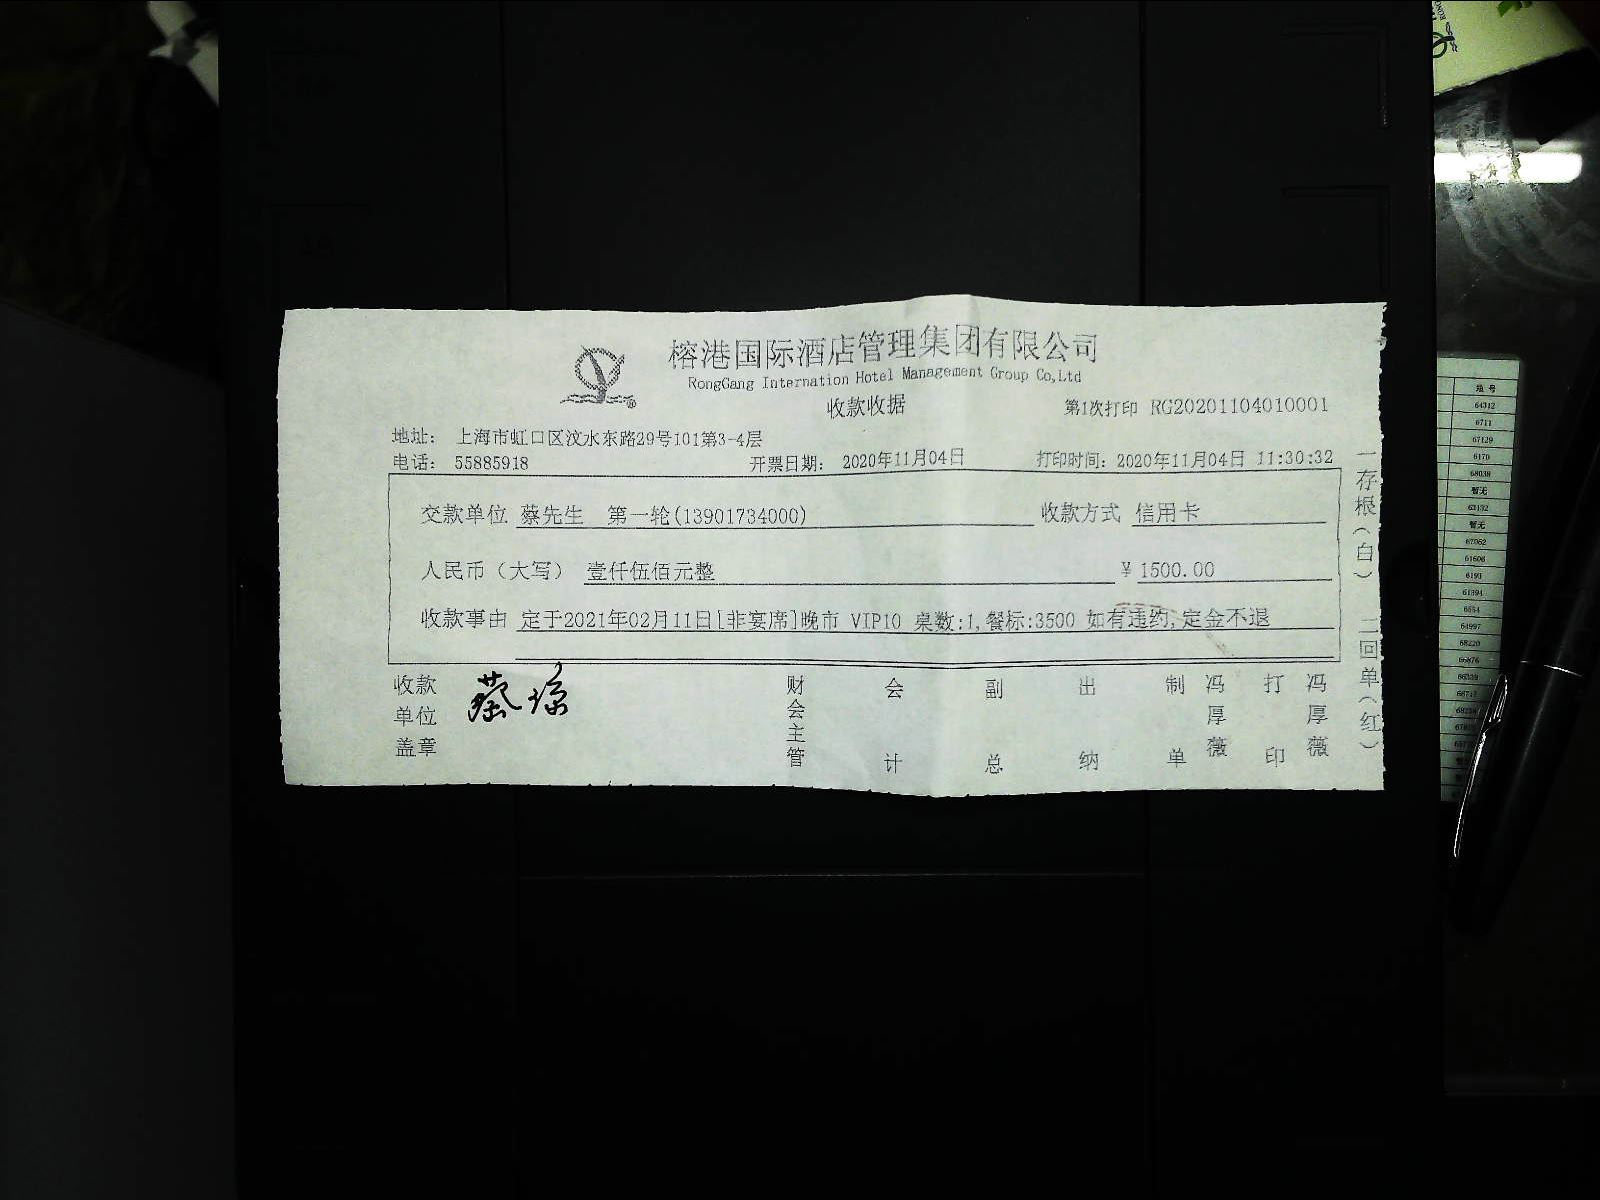 榕港国际酒店管理集团有限公司
RongGang Internation Hotel Management Group Co,Ltd
收款收据
第1次打印 RG20201104010001
地址： 上海市虹口区汶水东路29号101第3-4层
电话： 55885918 开票日期： 2020年11月04日 打印时间：2020年11月04日 11:30:32
交款单位 蔡先生 第一轮(13901734000) 收款方式 信用卡
人民币（大写） 壹仟伍佰元整 ￥1500.00
收款事由 定于2021年02月11日[非宴席]晚市 VIP10 桌数:1,餐标:3500 如有违约,定金不退
收款单位盖章 蔡琼 财会主管 会计 副总 出纳 制单 冯厚薇 打印 冯厚薇
一存根（白） 二回单（红）
64312
6711
67129
6170
68038
暂无
63132
暂无
67062
61606
6193
61394
6554
64997
68220